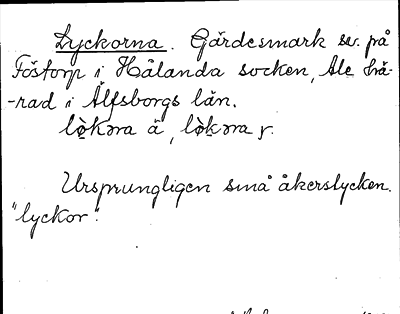 Lyckorna. Gärdesmark sv. på
Föstorp i Hålanda socken, Ale hä-
-rad i Älfsborgs län.
Ursprungligen små åkerslycken.
"lyckor".